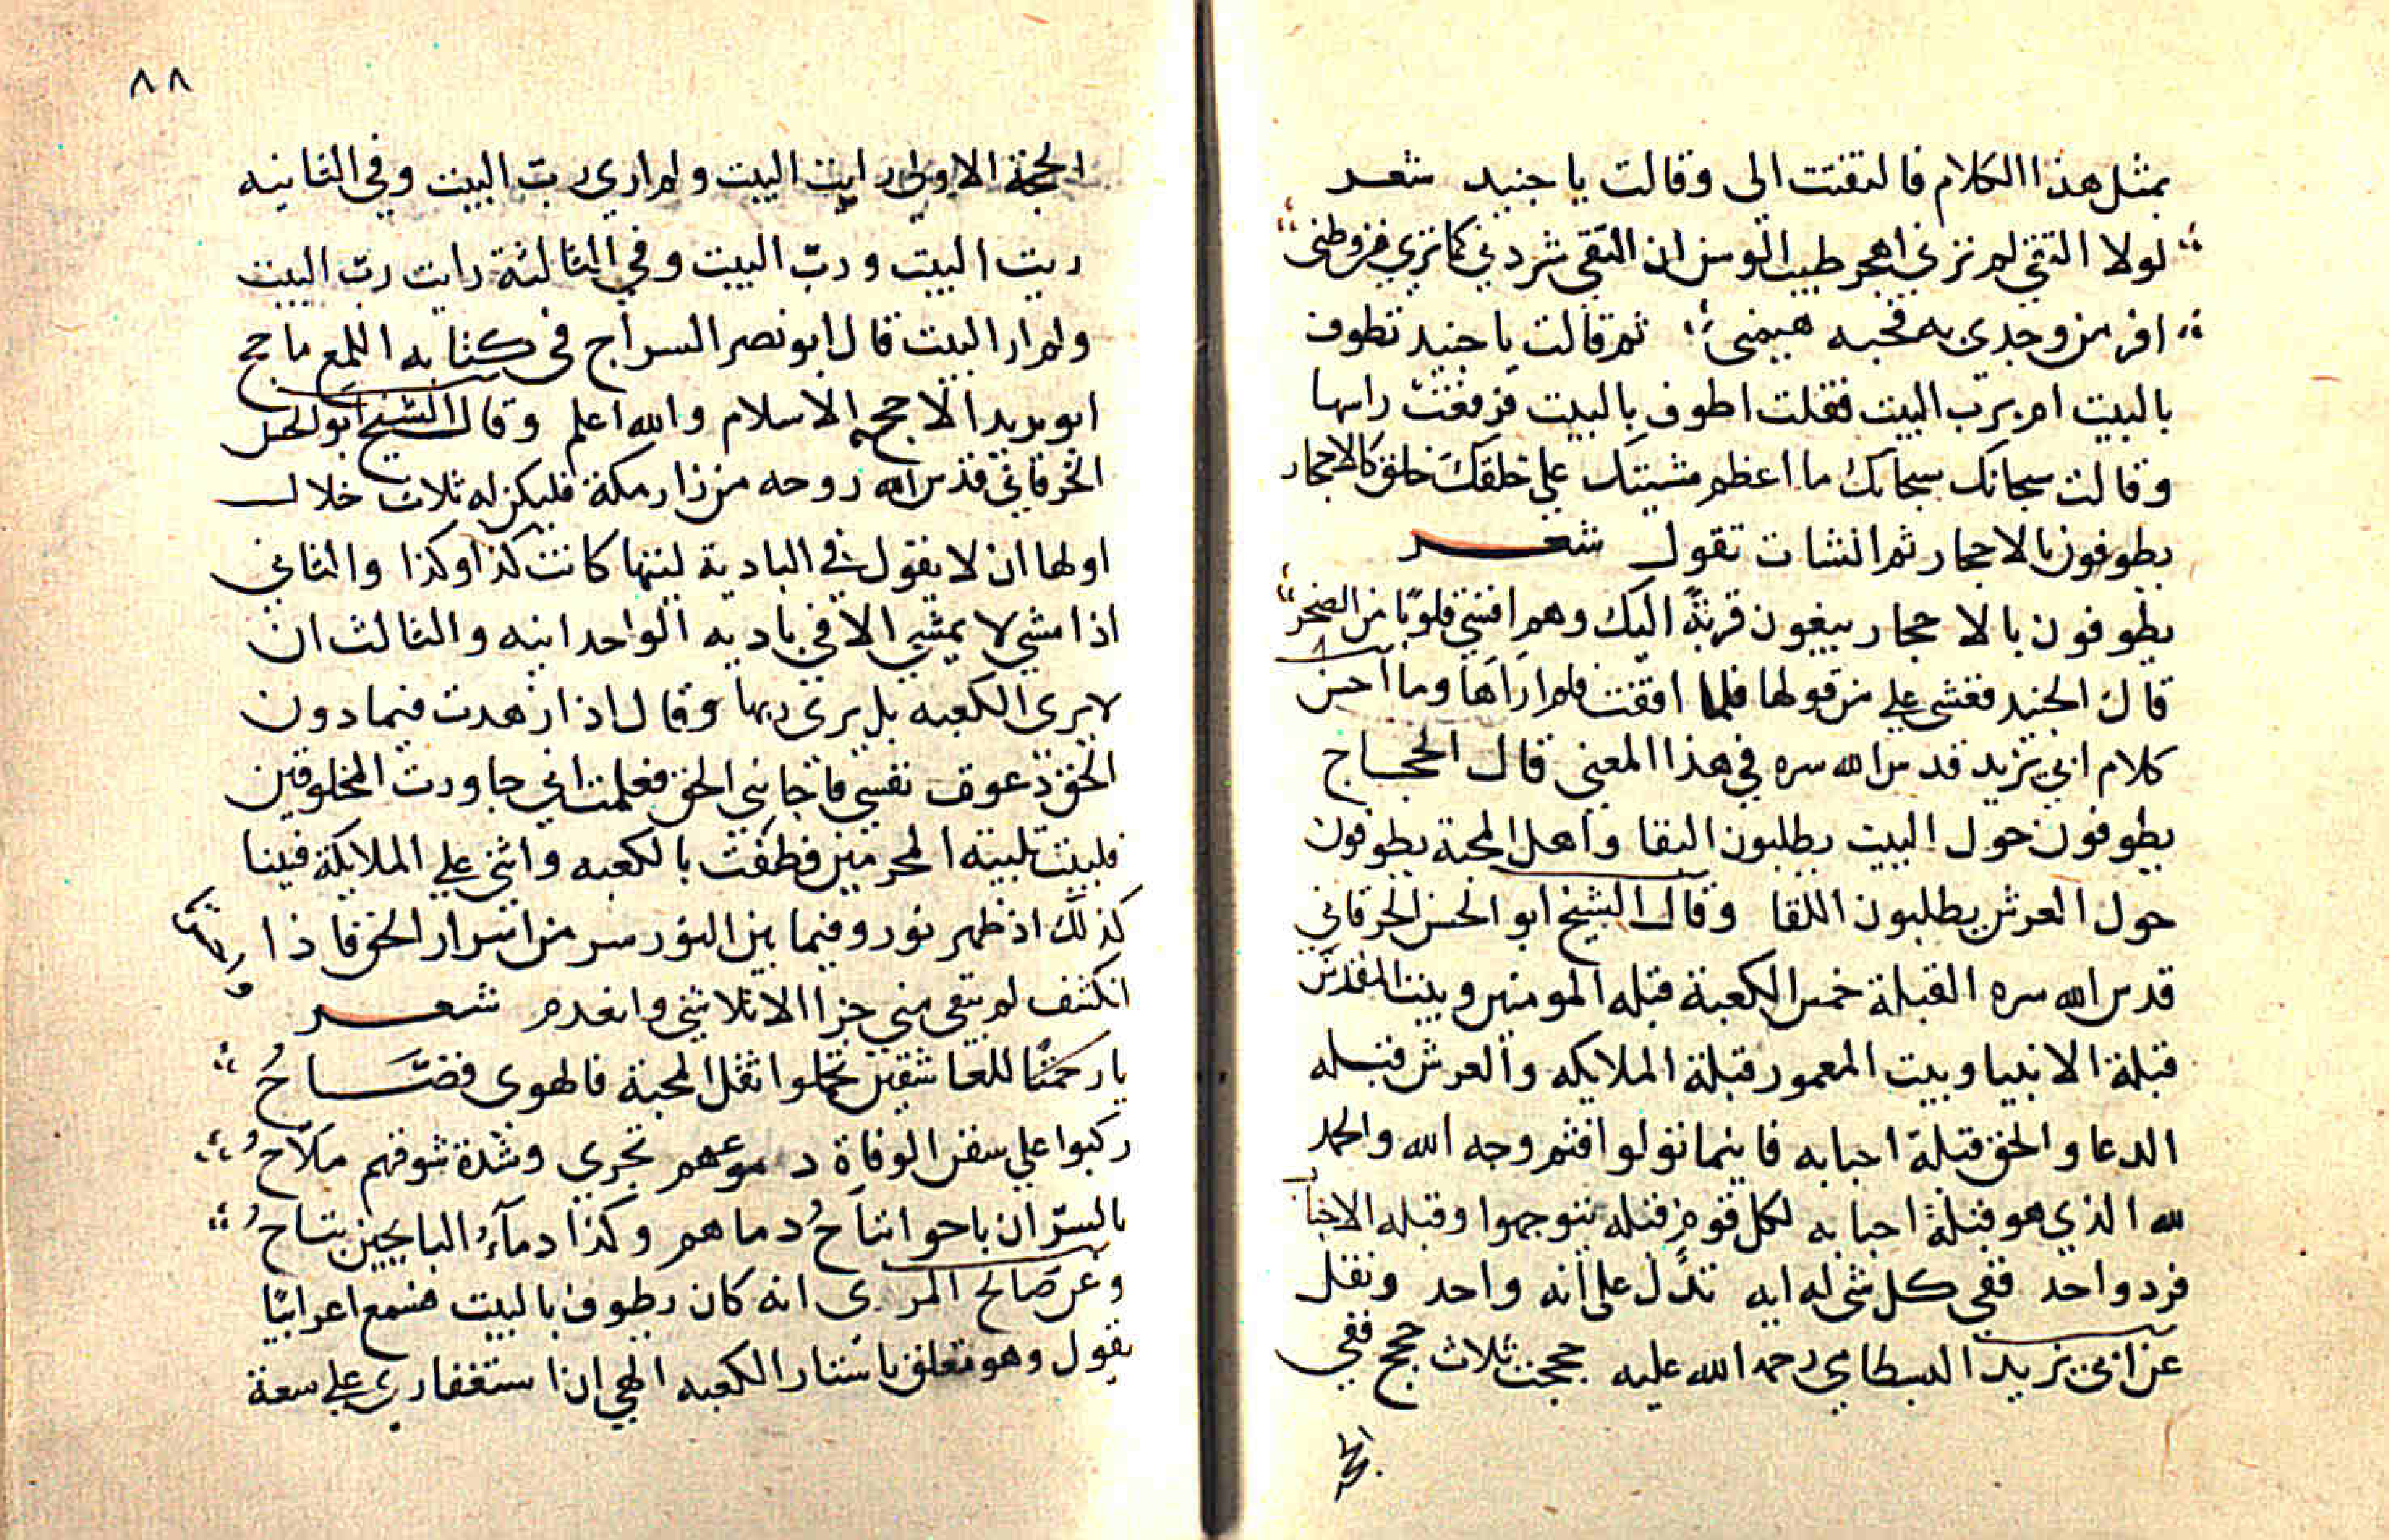 بمثل هذا الكلام فالتفتت الى وقالت يا جنيد شعر
لولا التقى لم ترني اهجر طيب الوسن ان التقى شردني كما ترى عن وطني
افر من وجدي به فحبه هيمني ثم قالت يا جنيد تطوف
بالبيت ام برب البيت فقلت اطوف بالبيت فرفعت راسها
وقالت سبحانك سبحانك ما اعظم مشيتك على خلقك خلق كالاحجار
يطوفون بالاحجار ثم انشات تقول شعر
يطوفون بالاحجار يبغون قربة اليك وهم اقسى قلوبا من الصخر
قال الجنيد فغشي علي من قولها فلما افقت فلم اراها وما احسن
كلام ابي يزيد قدس الله سره في هذا المعنى قال الحجاج
يطوفون حول البيت يطلبون البقا واهل المحبة يطوفون
حول العرش يطلبون اللقا وقال الشيخ ابو الحسن الخرقاني
قدس الله سره القبلة خمس الكعبة قبله المومنين وبيت المقدس
قبلة الانبيا وبيت المعمور قبلة الملايكه والعرش قبله
الدعا والحق قبلة احبابه فاينما تولوا فثم وجه الله والحمد
لله الذي هو قبلة احبابه لكل قوم قبله يتوجهوا وقبله الاحباب
فرد واحد ففي كل شي له ايه تدل على انه واحد ونقل
عن ابي يزيد البسطامي رحمه الله عليه حججت ثلاث حجج ففي
٨٨
الحجة الاولى رايت البيت ولم ارى رب البيت وفي الثانيه
ريت البيت ورب البيت وفي الثالثة رايت رب البيت
ولم ار البيت قال ابو نصر السراج في كتابه اللمع ما حج
ابو يزيد الا حجه الاسلام والله اعلم وقال الشيخ ابو الحسن
الخرقاني قدس الله روحه من زار مكة فليكن له ثلاث خلال
اولها ان لا يقول في البادية ليتها كانت كذا وكذا والثاني
اذا مشي لا يمشي الا في باديه الواحدانيه والثالث ان
لا يرى الكعبه بل يرى ربها وقال اذا زهدت فيما دون
الحق دعوت نفسي فاجابني الحق فعلمت اني جاوزت المخلوقين
فلبيت تلبية المحرمين فطفت بالكعبه واثنى علي الملايكة فبينا
كذلك اذ ظهر نور وفيما بين النور سر من اسرار الحق فاذا
انكشف لم يبقى مني جزا الا تلاشى وانعدم شعر
يا رحمتا للعاشقين تحملوا ثقل المحبة فالهوى فضّاحُ
ركبوا على سفن الوفاة دموعهم تجري وشدة شوقهم ملاحُ
بالسرّ ان باحوا تباحُ دماهم وكذا دمآء البايحين تباحُ
وعن صالح المرى انه كان يطوف بالبيت فسمع اعرابيا
يقول وهو متعلق باستار الكعبه الهي ان استغفاري على سعة